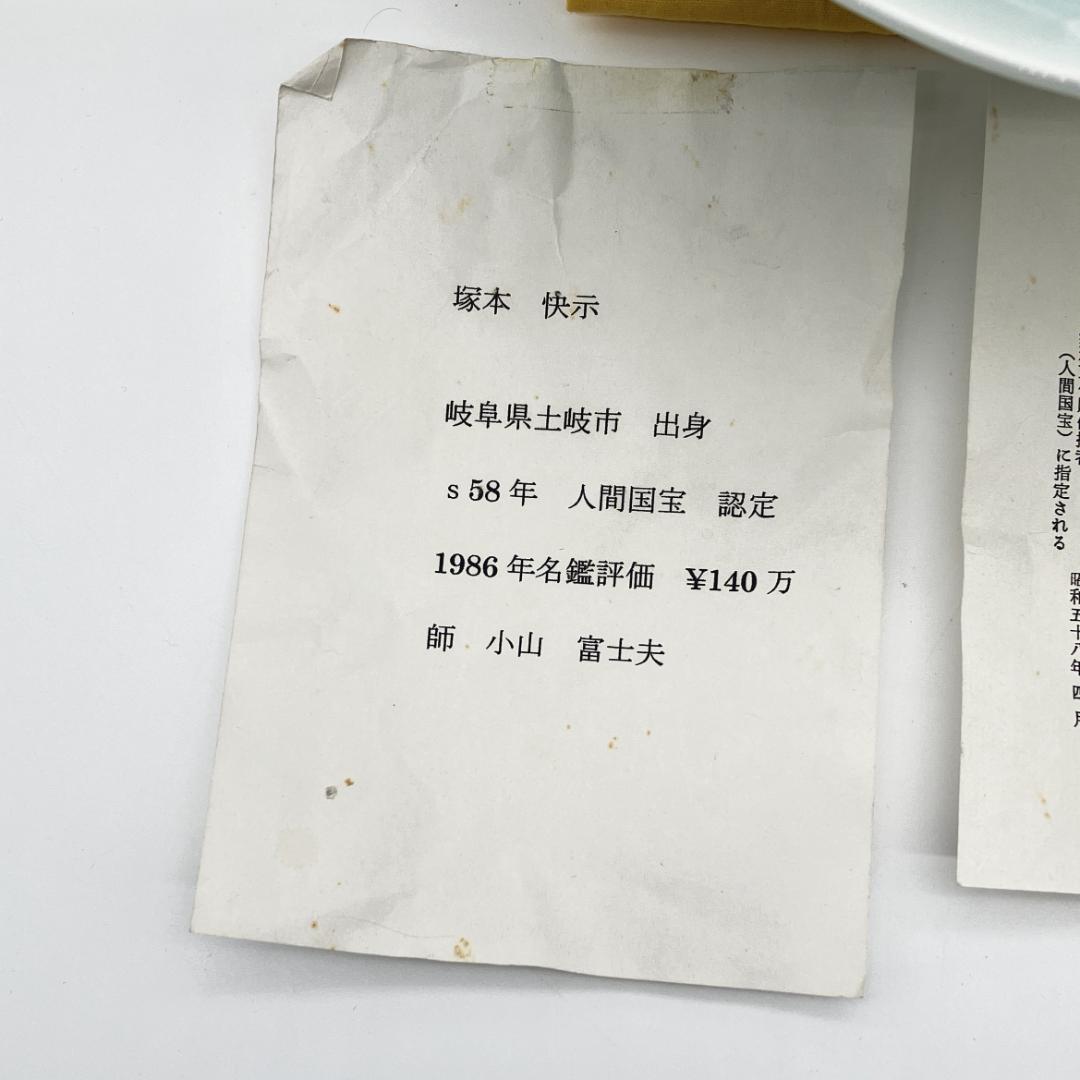 塚本　快示
岐阜県土岐市　出身
s 58 年　人間国宝　認定
1986 年名鑑評価　¥140 万
師　小山　富士夫
（人間国宝）に指定される
昭和五十八年 四 月